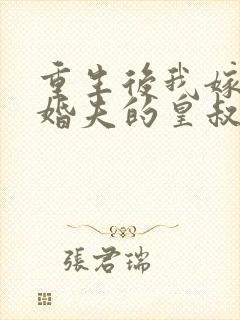 重生後我嫁
婚夫的皇叔
張君瑞